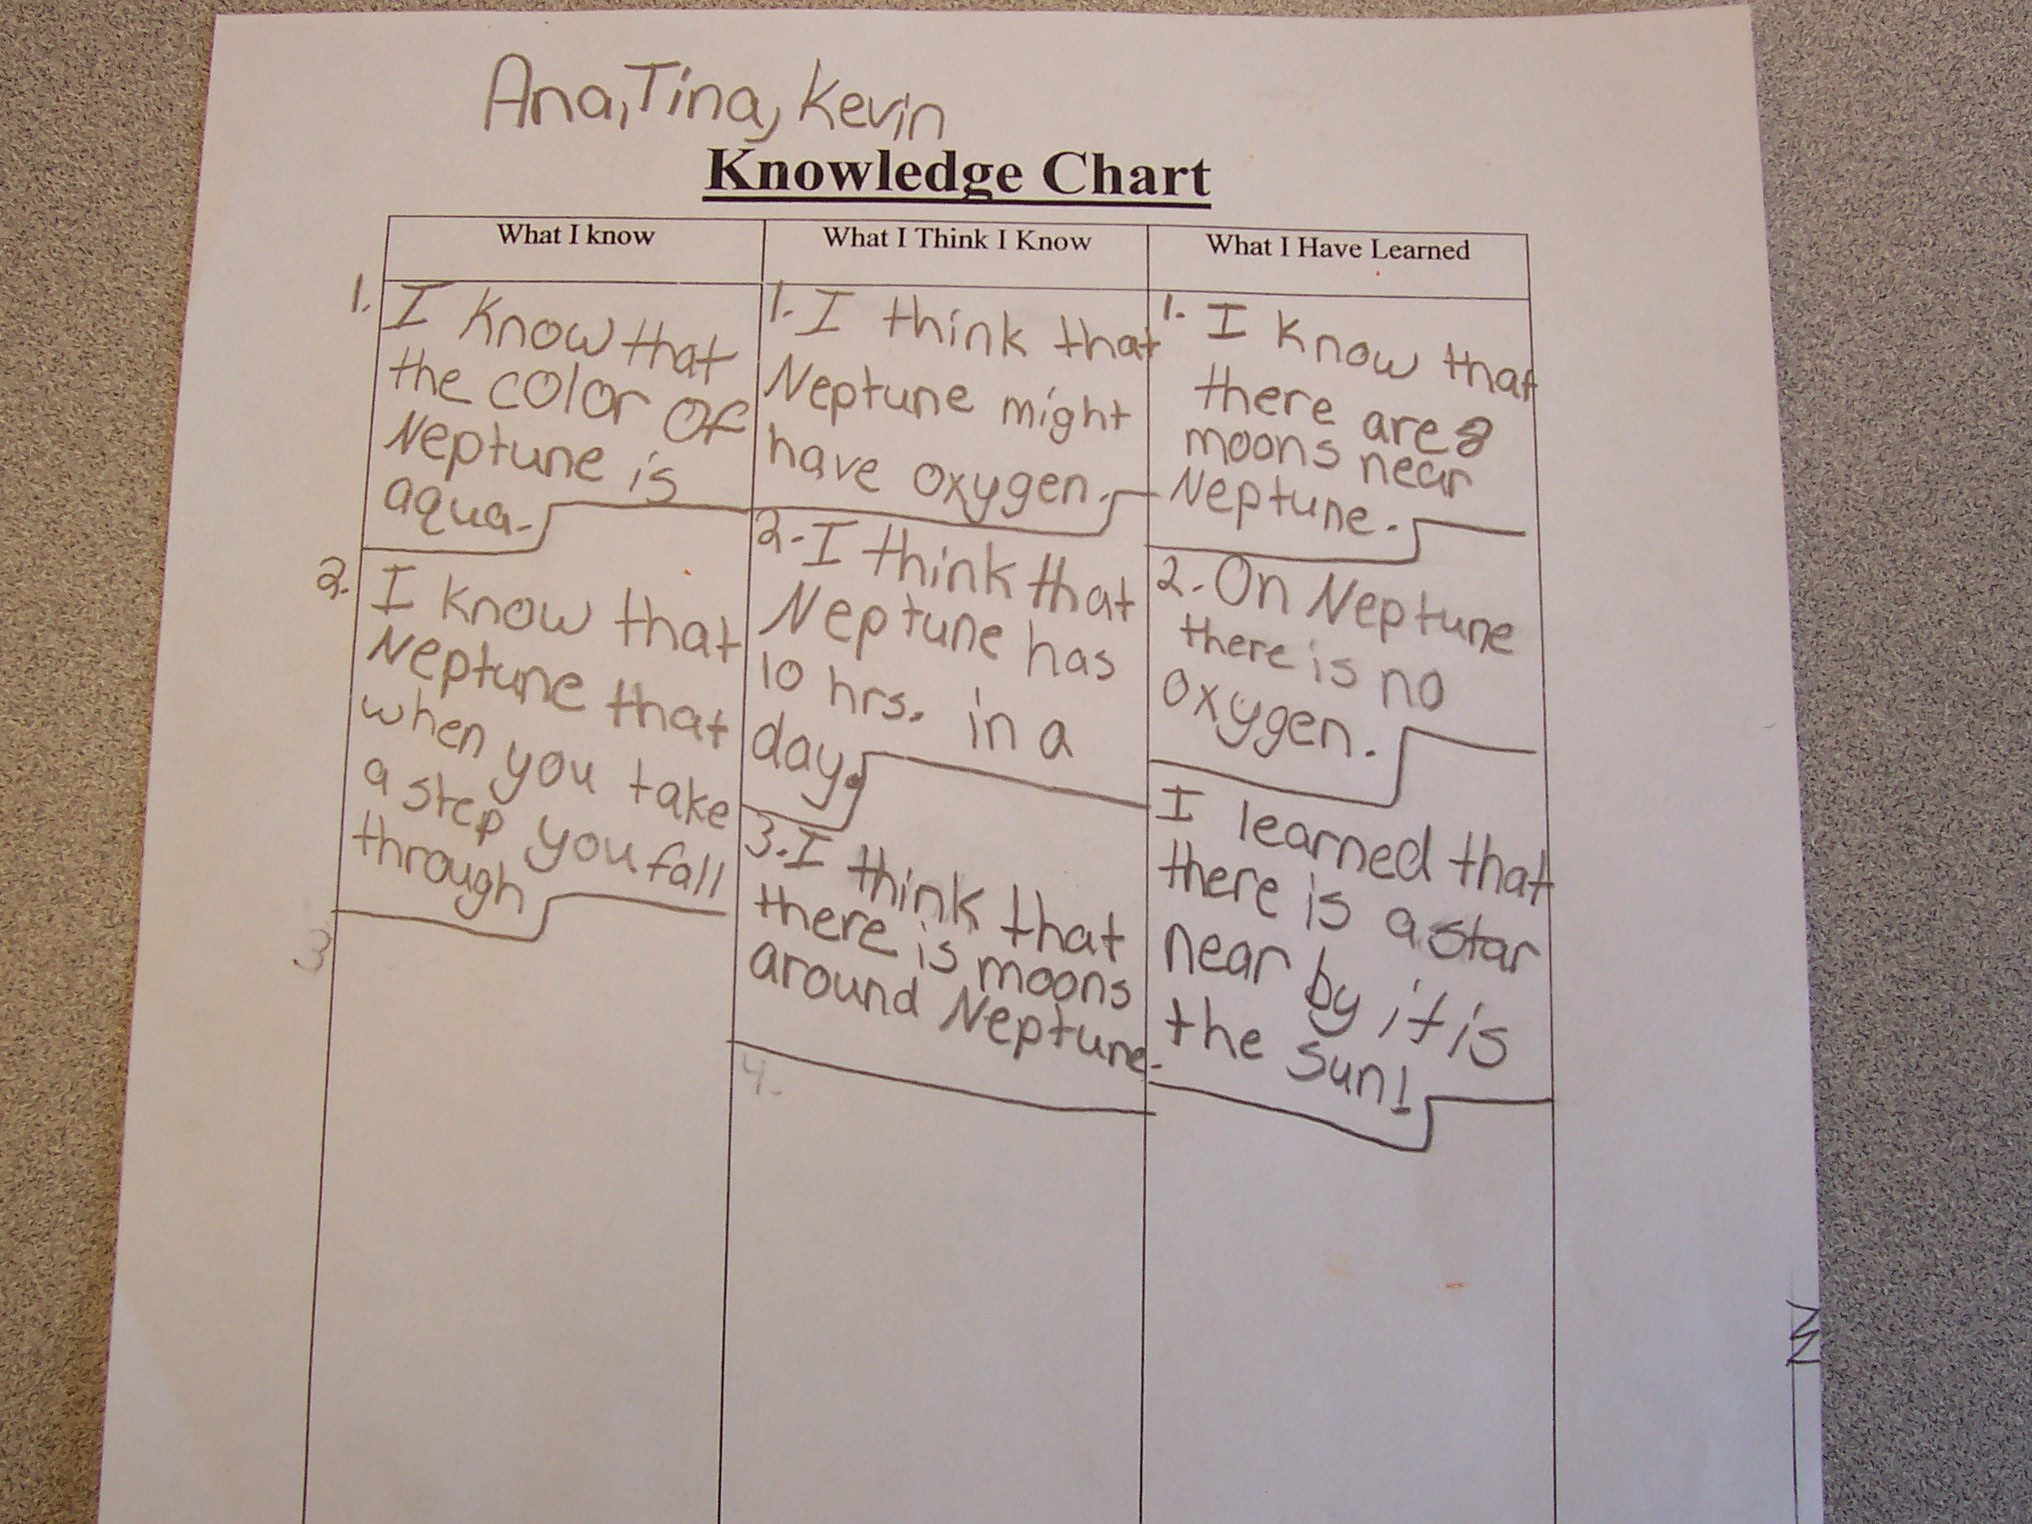 Ana, Tina, Kevin
Knowledge Chart
What I know
1. I know that
the color of
Neptune is
aqua.
2. I know that
Neptune that
when you take
a step you fall
through
3
What I Think I Know
1. I think that
Neptune might
have oxygen.
2. I think that
Neptune has
10 hrs. in a
day.
3. I think that
there is moons
around Neptune.
4.
What I Have Learned
1. I know that
there are 2
moons near
Neptune.
2. On Neptune
there is no
oxygen.
I learned that
there is a star
near by it is
the sun!